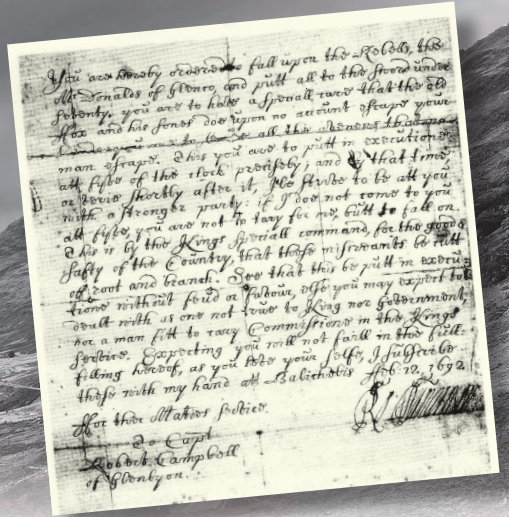 You are hereby ordered to fall upon the Rebells, the
McDonalds of Glenco, and putt all to the sword under
seventy. you are to have a speciall care that the old
Fox and his sones doe upon no account escape your
hands you are to secure all the avenues that no
man escape. This you are to putt in executione
att fyve of the clock precisely; and by that time,
or verie shortly after it, I'le strive to be att you
with a stronger party: if I doe not come to you
att fyve, you are not to tary for me, butt to fall on.
This is by the Kings speciall command, for the good &
safty of the Country, that these miscreants be cutt
off root and branch. See that this be putt in execu:
tione without feud or favour, else you may expect to be
dealt with as one not true to King nor Government,
nor a man fitt to cary Commissione in the Kings
service. Expecting you will not faill in the full:
filling hereof, as you love your selfe, I subscribe
these with my hand att Balicholis Feb: 12, 1692
For their Maties service.
To Capt
Robert Campbell
of Glenlyon.